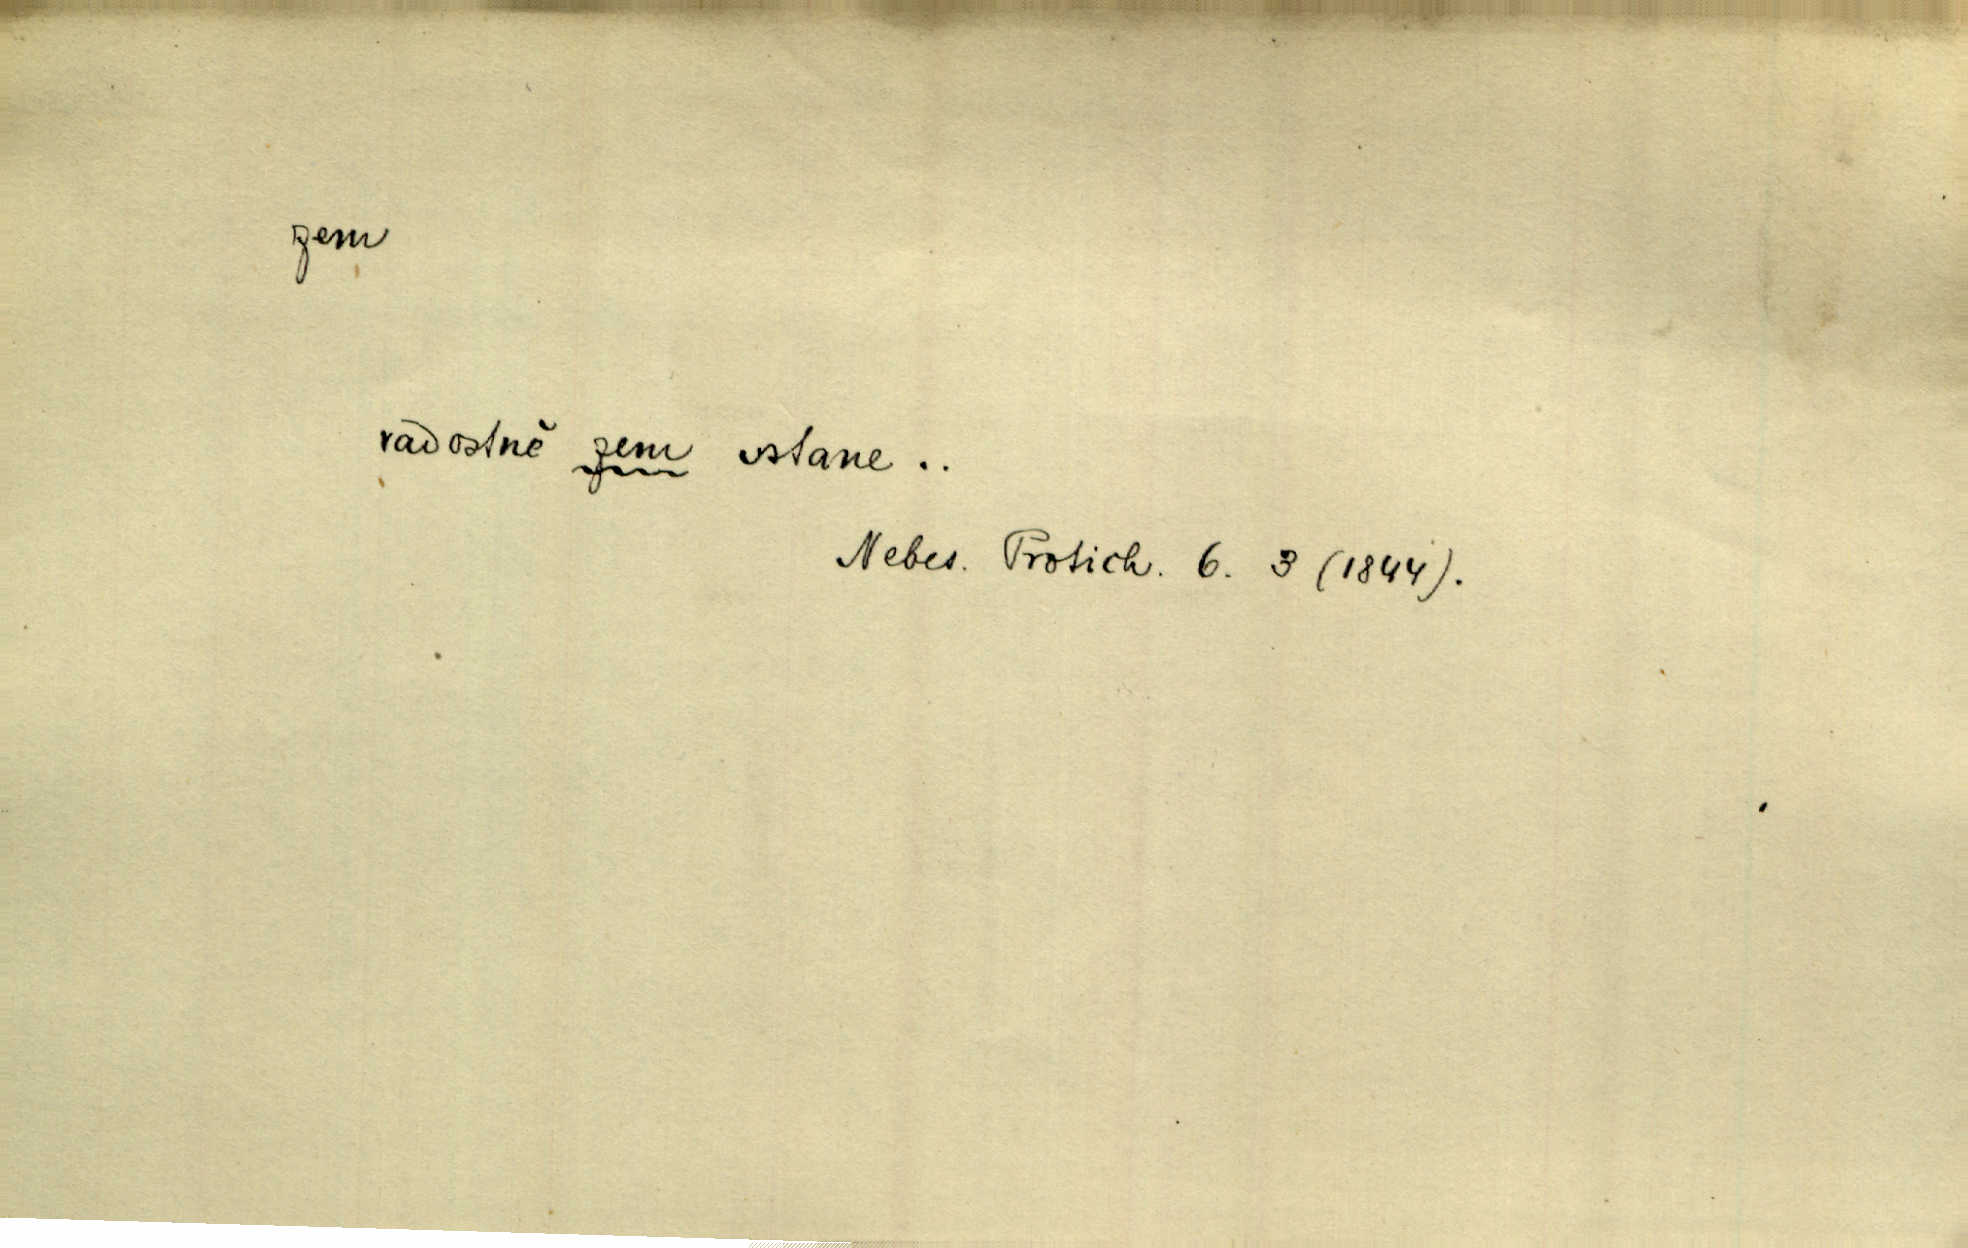 zem
radostně zem vstane ..
Nebes. Protich. 6. 3 (1844).